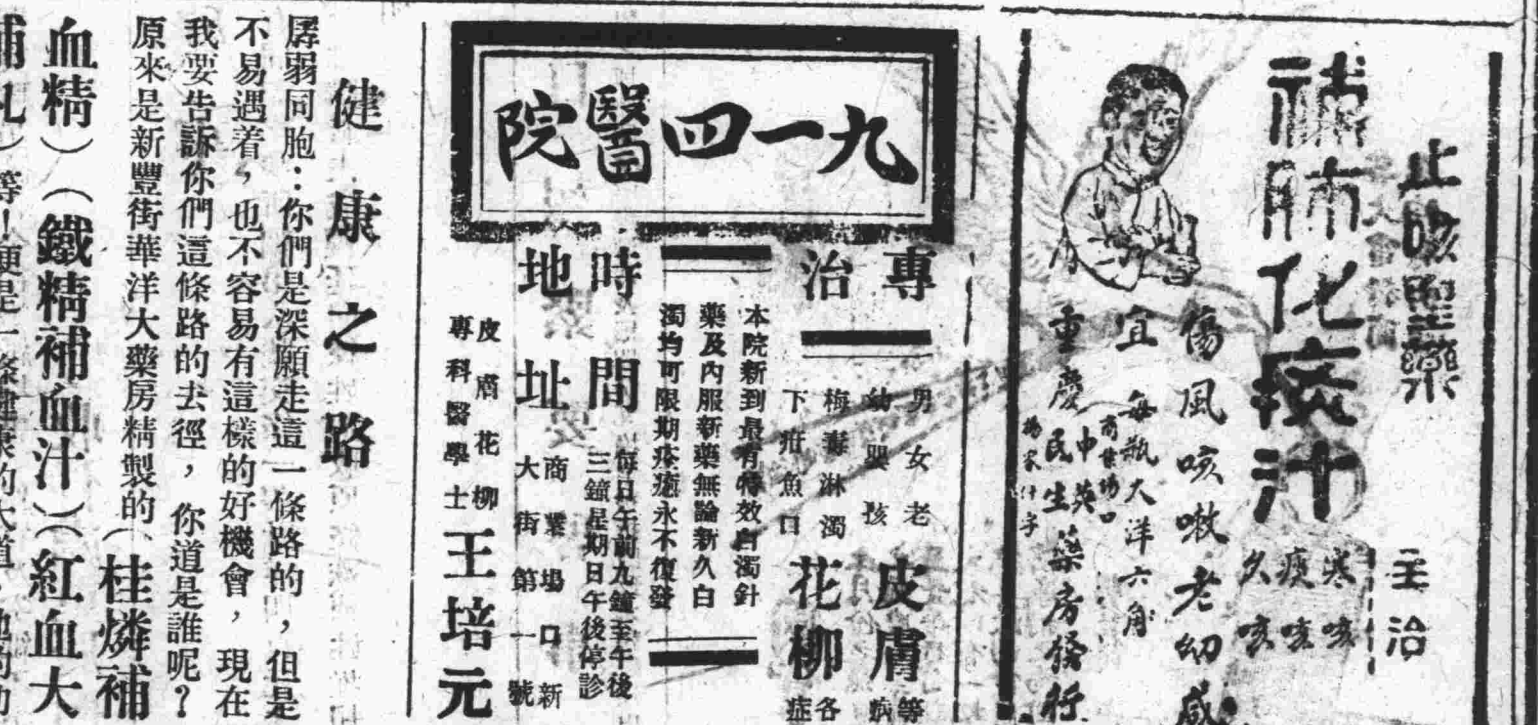 止咳聖藥
主治
補肺化痰汁
寒咳
痰咳
久咳
傷風咳嗽老幼咸
宜 每瓶大洋六角
商業場口
中英
重慶民生藥房發行
楊家什字
九一四醫院
專治
男女老
幼嬰孩
皮膚
等病
梅毒淋濁
下疳魚口
花柳
各症
本院新到最有特效白濁針
藥及內服新藥無論新久白
濁均可限期痊癒永不復發
時間
每日午前九鐘至午後
三鐘星期日午後停診
地址
商業場口新
大街第一號
皮膚花柳
專科醫學士
王培元
健康之路
孱弱同胞：你們是深願走這一條路的，但是
不易遇着，也不容易有這樣的好機會，現在
我要告訴你們這條路的去徑，你道是誰呢？
原來是新豐街華洋大藥房精製的（桂燐補
血精）（鐵精補血汁）（紅血大
補丸）等！便是一條健康的大道，他的功